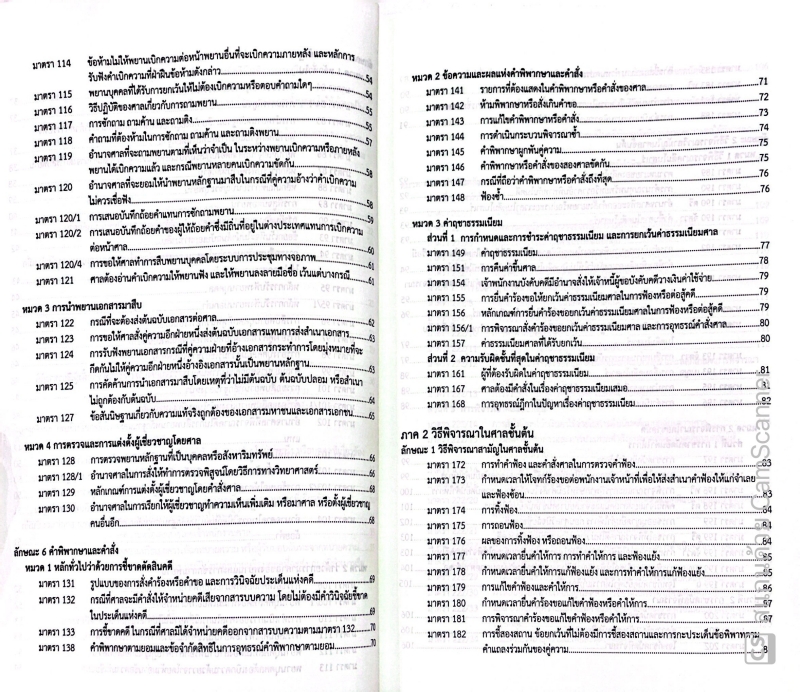 มาตรา 114 ข้อห้ามไม่ให้พยานเบิกความต่อหน้าพยานอื่นที่จะเบิกความภายหลัง และหลักการ
รับฟังคำเบิกความที่ฝ่าฝืนข้อห้ามดังกล่าว 54
มาตรา 115 พยานบุคคลที่ได้รับการยกเว้นให้ไม่ต้องเบิกความหรือตอบคำถามใดๆ 54
มาตรา 116 วิธีปฏิบัติของศาลเกี่ยวกับการถามพยาน 55
มาตรา 117 การซักถาม ถามค้าน และถามติง 55
มาตรา 118 คำถามที่ต้องห้ามในการซักถาม ถามค้าน และถามติงพยาน 57
มาตรา 119 อำนาจศาลที่จะถามพยานตามที่เห็นว่าจำเป็น ในระหว่างพยานเบิกความหรือภายหลัง
พยานได้เบิกความแล้ว และกรณีพยานหลายคนเบิกความขัดกัน 58
มาตรา 120 อำนาจศาลที่จะยอมให้นำพยานหลักฐานมาสืบในกรณีที่คู่ความอ้างว่าคำเบิกความ
ไม่ควรเชื่อฟัง 58
มาตรา 120/1 การเสนอบันทึกถ้อยคำแทนการซักถามพยาน 59
มาตรา 120/2 การเสนอบันทึกถ้อยคำของผู้ให้ถ้อยคำซึ่งมีถิ่นที่อยู่ในต่างประเทศแทนการเบิกความ
ต่อหน้าศาล 60
มาตรา 120/4 การขอให้ศาลทำการสืบพยานบุคคลโดยระบบการประชุมทางจอภาพ 61
มาตรา 121 ศาลต้องอ่านคำเบิกความให้พยานฟัง และให้พยานลงลายมือชื่อ เว้นแต่บางกรณี 61
หมวด 3 การนำพยานเอกสารมาสืบ
มาตรา 122 กรณีที่จะต้องส่งต้นฉบับเอกสารต่อศาล 62
มาตรา 123 การขอให้ศาลสั่งคู่ความอีกฝ่ายหนึ่งส่งต้นฉบับเอกสารแทนการส่งสำเนาเอกสาร 63
มาตรา 124 การรับฟังพยานเอกสารกรณีที่คู่ความฝ่ายที่อ้างเอกสารกระทำการโดยมุ่งหมายที่จะ
กีดกันไม่ให้คู่ความอีกฝ่ายหนึ่งอ้างอิงเอกสารนั้นเป็นพยานหลักฐาน 63
มาตรา 125 การคัดค้านการนำเอกสารมาสืบโดยเหตุที่ว่าไม่มีต้นฉบับ ต้นฉบับปลอม หรือสำเนา
ไม่ถูกต้องกับต้นฉบับ 64
มาตรา 127 ข้อสันนิษฐานเกี่ยวกับความแท้จริงถูกต้องของเอกสารมหาชนและเอกสารเอกชน 65
หมวด 4 การตรวจและการแต่งตั้งผู้เชี่ยวชาญโดยศาล
มาตรา 128 การตรวจพยานหลักฐานที่เป็นบุคคลหรือสังหาริมทรัพย์ 66
มาตรา 128/1 อำนาจศาลในการสั่งให้ทำการตรวจพิสูจน์โดยวิธีการทางวิทยาศาสตร์ 66
มาตรา 129 หลักเกณฑ์การแต่งตั้งผู้เชี่ยวชาญโดยคำสั่งศาล 68
มาตรา 130 อำนาจศาลในการเรียกให้ผู้เชี่ยวชาญทำความเห็นเพิ่มเติม หรือมาศาล หรือตั้งผู้เชี่ยวชาญ
คนอื่นอีก 68
ลักษณะ 6 คำพิพากษาและคำสั่ง
หมวด 1 หลักทั่วไปว่าด้วยการชี้ขาดตัดสินคดี
มาตรา 131 รูปแบบของการสั่งคำร้องหรือคำขอ และการวินิจฉัยประเด็นแห่งคดี 69
มาตรา 132 กรณีที่ศาลจะมีคำสั่งให้จำหน่ายคดีเสียจากสารบบความ โดยไม่ต้องมีคำวินิจฉัยชี้ขาด
ในประเด็นแห่งคดี 69
มาตรา 133 การชี้ขาดคดี ในกรณีที่ศาลมิได้จำหน่ายคดีออกจากสารบบความตามมาตรา 132 70
มาตรา 138 คำพิพากษาตามยอมและข้อจำกัดสิทธิในการอุทธรณ์คำพิพากษาตามยอม 70
หมวด 2 ข้อความและผลแห่งคำพิพากษาและคำสั่ง
มาตรา 141 รายการที่ต้องแสดงในคำพิพากษาหรือคำสั่งของศาล 71
มาตรา 142 ห้ามพิพากษาหรือสั่งเกินคำขอ 72
มาตรา 143 การแก้ไขคำพิพากษาหรือคำสั่ง 73
มาตรา 144 การดำเนินกระบวนพิจารณาซ้ำ 74
มาตรา 145 คำพิพากษาผูกพันคู่ความ 75
มาตรา 146 คำพิพากษาหรือคำสั่งของสองศาลขัดกัน 75
มาตรา 147 กรณีที่ถือว่าคำพิพากษาหรือคำสั่งถึงที่สุด 76
มาตรา 148 ฟ้องซ้ำ 76
หมวด 3 ค่าฤชาธรรมเนียม
ส่วนที่ 1 การกำหนดและการชำระค่าฤชาธรรมเนียม และการยกเว้นค่าธรรมเนียมศาล
มาตรา 149 ค่าฤชาธรรมเนียม 77
มาตรา 151 การคืนค่าขึ้นศาล 78
มาตรา 154 เจ้าพนักงานบังคับคดีมีอำนาจสั่งให้เจ้าหนี้ผู้ขอบังคับคดีวางเงินค่าใช้จ่าย 79
มาตรา 155 การยื่นคำร้องขอให้ยกเว้นค่าธรรมเนียมศาลในการฟ้องหรือต่อสู้คดี 79
มาตรา 156 หลักเกณฑ์การยื่นคำร้องขอยกเว้นค่าธรรมเนียมศาลในการฟ้องหรือต่อสู้คดี 79
มาตรา 156/1 การพิจารณาสั่งคำร้องขอยกเว้นค่าธรรมเนียมศาล และการอุทธรณ์คำสั่งศาล 80
มาตรา 157 ค่าธรรมเนียมศาลที่ได้รับยกเว้น 80
ส่วนที่ 2 ความรับผิดชั้นที่สุดในค่าฤชาธรรมเนียม
มาตรา 161 ผู้ที่ต้องรับผิดในค่าฤชาธรรมเนียม 81
มาตรา 167 ศาลต้องมีคำสั่งในเรื่องค่าฤชาธรรมเนียมเสมอ
มาตรา 168 การอุทธรณ์ฎีกาในปัญหาเรื่องค่าฤชาธรรมเนียม 82
ภาค 2 วิธีพิจารณาในศาลชั้นต้น
ลักษณะ 1 วิธีพิจารณาสามัญในศาลชั้นต้น
มาตรา 172 การทำคำฟ้อง และคำสั่งศาลในการตรวจคำฟ้อง 83
มาตรา 173 กำหนดเวลาให้โจทก์ร้องขอต่อพนักงานเจ้าหน้าที่เพื่อให้ส่งสำเนาคำฟ้องให้แก่จำเลย
และฟ้องซ้อน 83
มาตรา 174 การทิ้งฟ้อง 84
มาตรา 175 การถอนฟ้อง 84
มาตรา 176 ผลของการทิ้งฟ้อง หรือถอนฟ้อง 84
มาตรา 177 กำหนดเวลายื่นคำให้การ การทำคำให้การ และฟ้องแย้ง
มาตรา 178 กำหนดเวลายื่นคำให้การแก้ฟ้องแย้ง และการทำคำให้การแก้ฟ้องแย้ง
มาตรา 179 การแก้ไขคำฟ้องและคำให้การ
มาตรา 180 กำหนดเวลายื่นคำร้องขอแก้ไขคำฟ้องหรือคำให้การ
มาตรา 181 การพิจารณาคำร้องขอแก้ไขคำฟ้องหรือคำให้การ
มาตรา 182 การชี้สองสถาน ข้อยกเว้นที่ไม่ต้องมีการชี้สองสถานและการกะประเด็นข้อพิพาทตาม
คำแถลงร่วมกันของคู่ความ
CS สแกนด้วย CamScanner